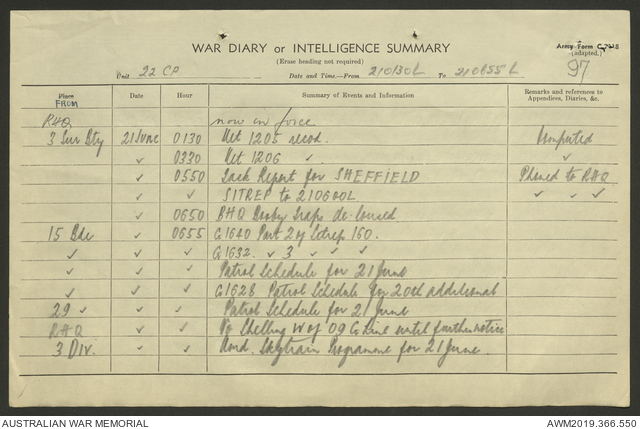 WAR DIARY or INTELLIGENCE SUMMARY
(Erase heading not required)
Army Form
(adapted.)
97
Unit 22 CP Date and Time—From 210130L To 210655L
Place Date Hour Summary of Events and Information Remarks and references to Appendices, Diaries, &c.
FROM
RHQ now in force
3 Sur Bty 21 June 0130 Met 1205 recd. Computed
✓ 0330 Met 1206 ✓ ✓
✓ 0550 Report for SHEFFIELD Phoned to RHQ
✓ ✓ SITREP to 210600L ✓ ✓ ✓
✓ 0650 RHQ Booby Traps de-loused
15 Bde ✓ 0655 G1640 Part 2 of Sitrep 160.
✓ ✓ ✓ G1632. ✓ 3 ✓ ✓ ✓
✓ ✓ ✓ Patrol Schedule for 21 June
✓ ✓ ✓ G1628 Patrol Schedule for 20th additional
29 ✓ ✓ ✓ Patrol Schedule for 21 June
RHQ ✓ ✓ No Shelling W of 09 G Line until further notice
3 Div. ✓ ✓ Skytrain Programme for 21 June.
AUSTRALIAN WAR MEMORIAL AWM2019.366.550